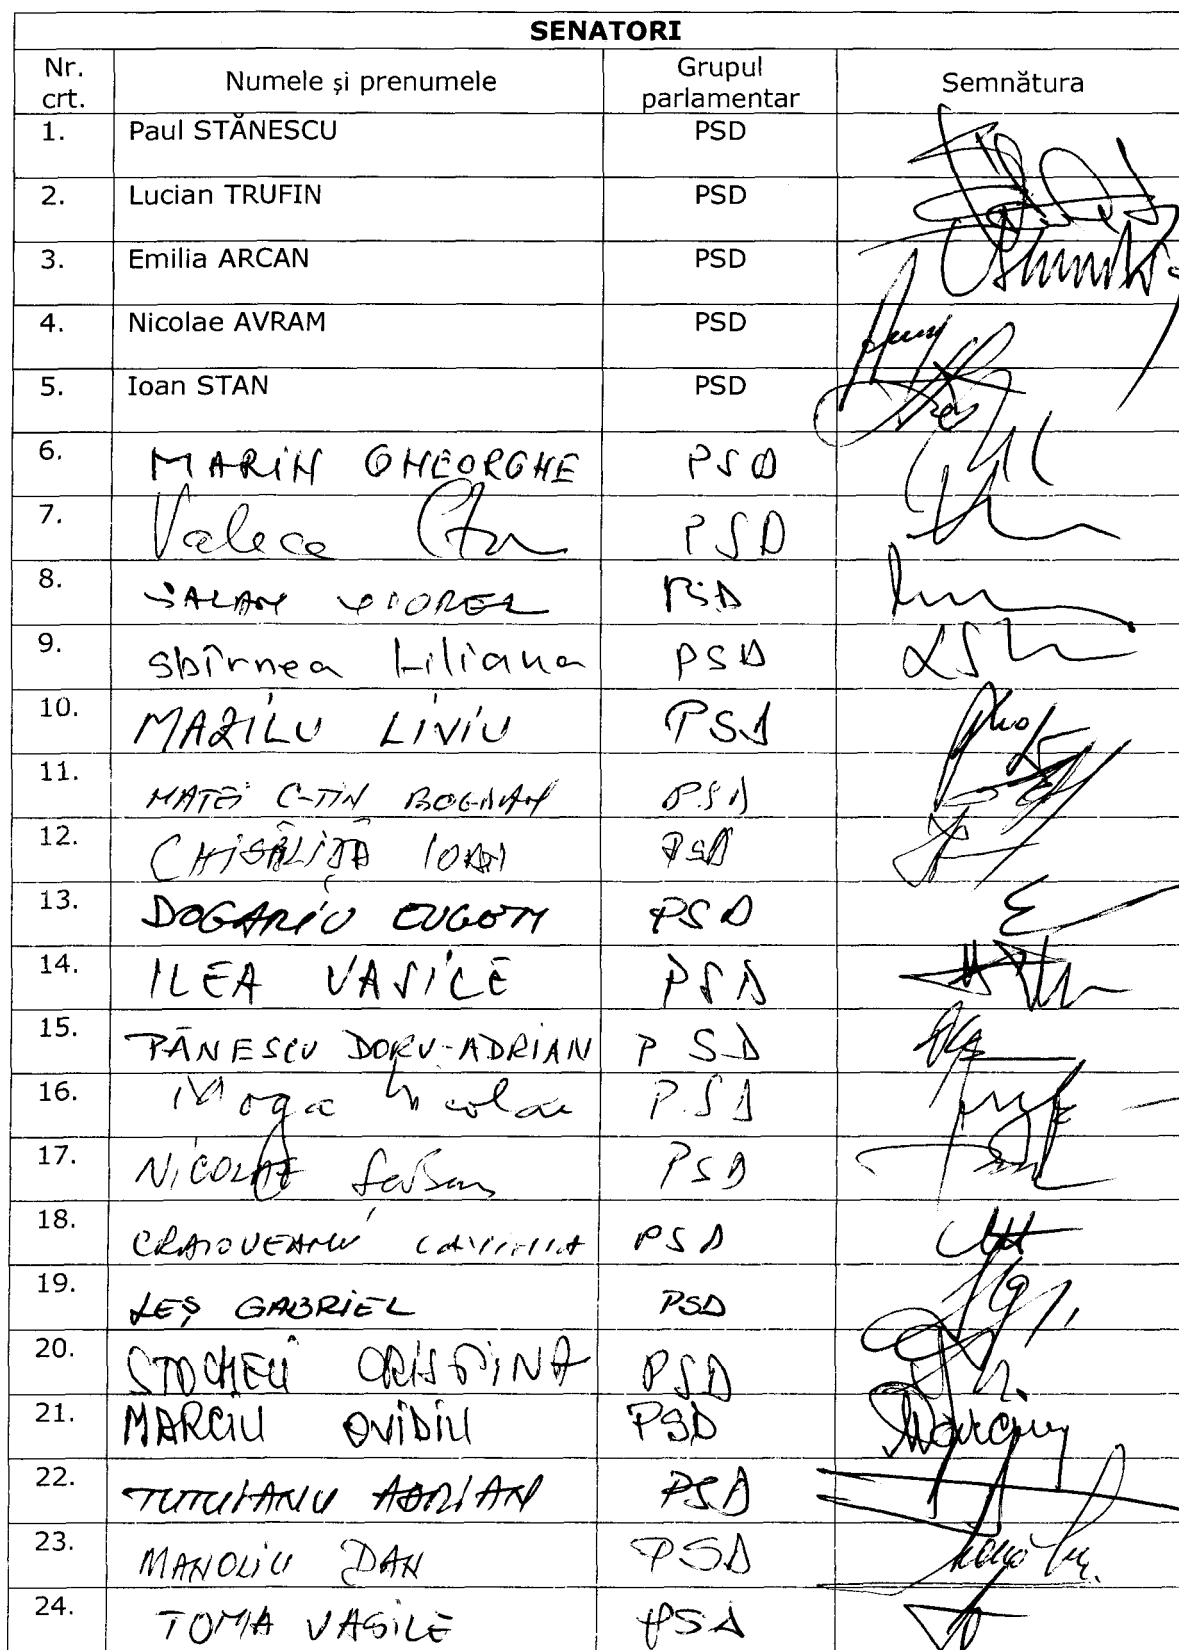 SENATORI
Nr. crt. Numele și prenumele Grupul parlamentar Semnătura
1. Paul STĂNESCU PSD
2. Lucian TRUFIN PSD
3. Emilia ARCAN PSD
4. Nicolae AVRAM PSD
5. Ioan STAN PSD
6. MARIN GHEORGHE PSD
7. Valeca PSD
8. SALAN VIOREL PSD
9. Sbîrnea Liliana PSD
10. MAZILU LIVIU PSD
11. MATEI C-TIN BOGDAN PSD
12. CHISĂLIȚĂ IOAN PSD
13. DOGARIU EUGEN PSD
14. ILEA VASILE PSD
15. PĂNESCU DORU-ADRIAN PSD
16. Moga Nicolae PSD
17. NICOLAE Șerban PSD
18. CRAIOVEANU PSD
19. LEȘ GABRIEL PSD
20. STOCHEU CRISTINA PSD
21. MARCIU OVIDIU PSD
22. TUTUIANU ADRIAN PSD
23. MANOLIU DAN PSD
24. TOMA VASILE PSD